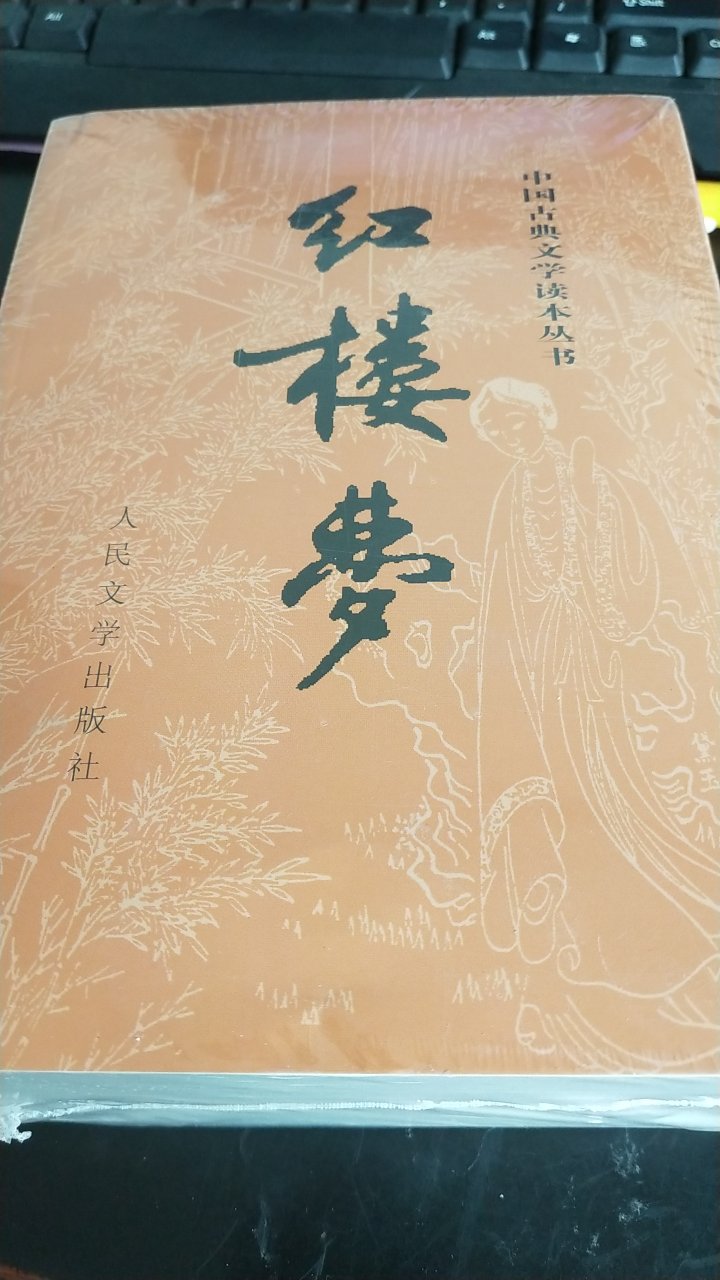 中国古典文学读本丛书
红楼梦
人民文学出版社
黛玉
Alt
Shift